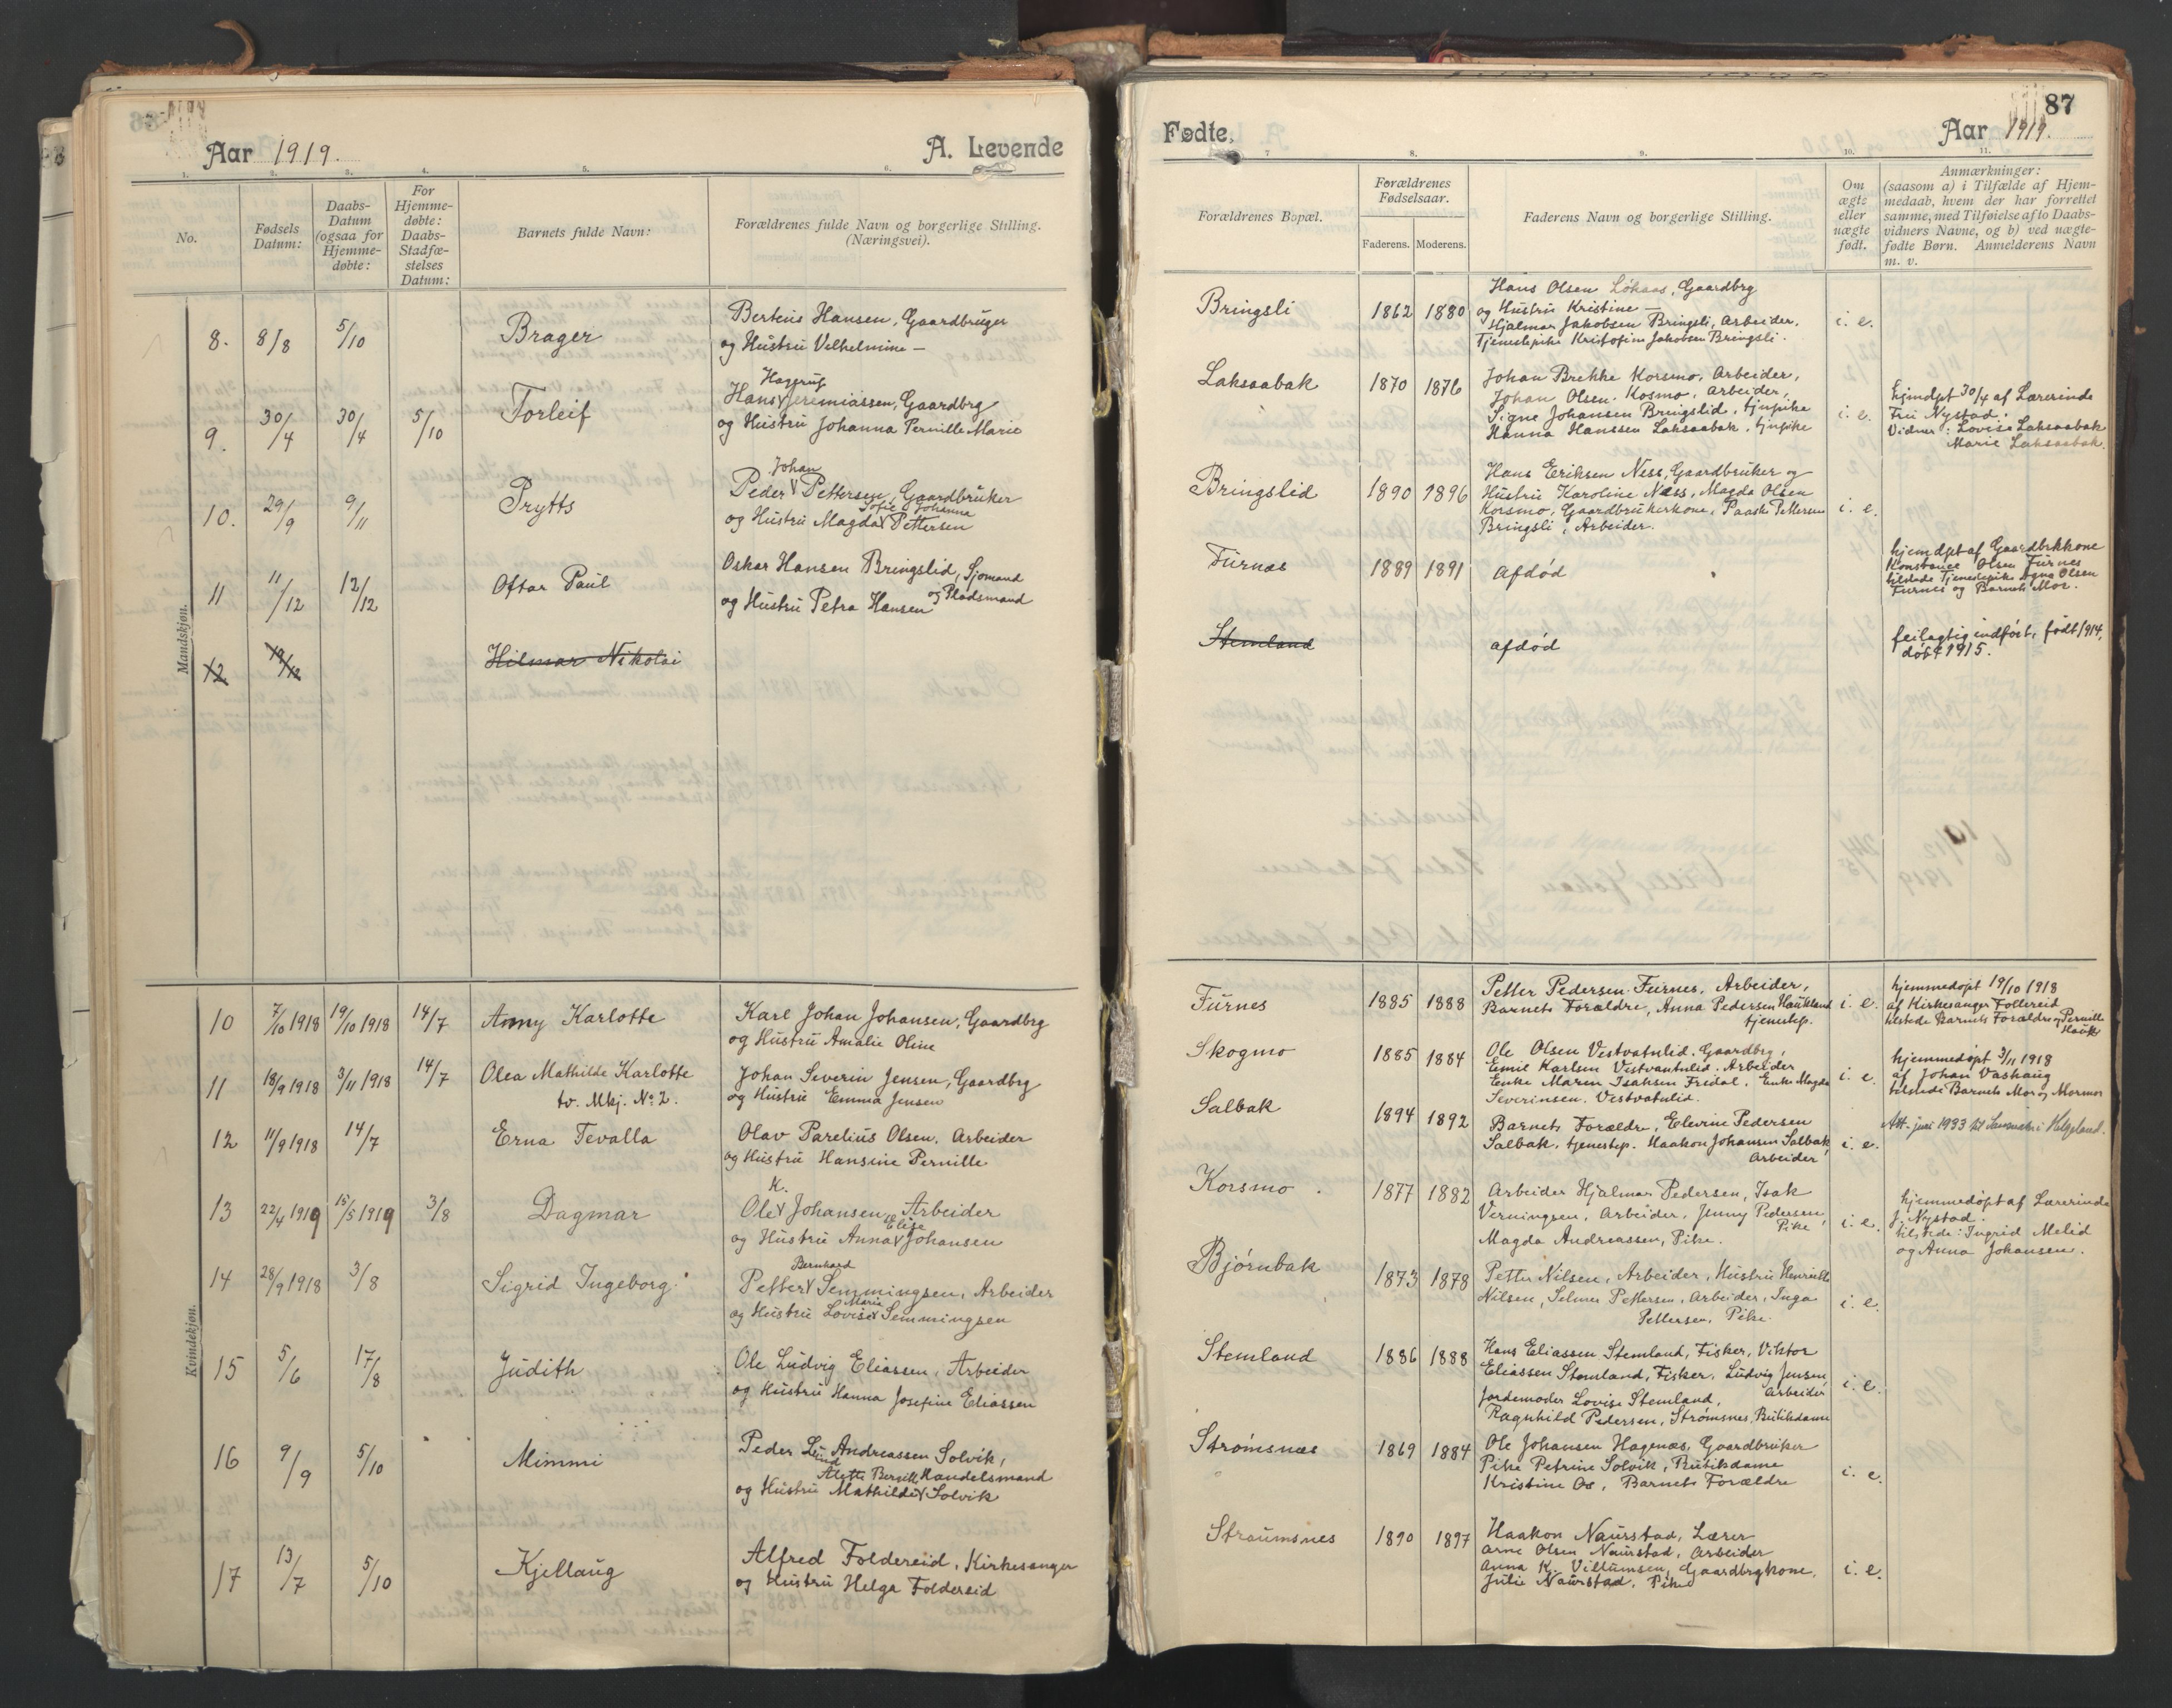 Aar 1919.
A. Levende
1. 2. 3. 4. 5. 6.
No.
Fødsels Datum:
Daabs-Datum (ogsaa for Hjemme-døbte:
For Hjemme-døbte: Daabs-Stadfæ-stelses Datum:
Barnets fulde Navn:
Forældrenes fulde Navn og borgerlige Stilling.
(Næringsvei).
Mandskjøn.
8. 8/8 5/10 Brager
Berteus Hansen, Gaardbruger
og Hustru Velhelmine —
9. 30/4 30/4 5/10 Torleif
Haggrup
Hans Jeremiassen, Gaardbrg
og Hustru Johanna Pernille Marie
10. 29/9 9/11 Prytts
Johan
Peder Pettersen, Gaardbruker
Sofie Johanna
og Hustru Magda Pettersen
11 11/12 12/12 Oftar Paul
Oskar Hansen Bringslid, Sjømand
og Pladsmand
og Hustru Petra Hansen
12 Hilmar Nikolai
Kvindekjøn.
10 7/10 1918 19/10 1918 14/7 Anny Karlotte
Karl Johan Johansen, Gaardbrg
og Hustru Amalie Oline
11 18/9 1918 3/11 1918 14/7 Olea Mathilde Karlotte
tv. Mkj. No 2.
Johan Severin Jensen, Gaardbrg
og Hustru Emma Jensen
12 11/9 1918 14/7 Erna Tevalla
Olav Parelius Olsen, Arbeider
og Hustru Hansine Pernille
13 22/4 1919 15/5 1919 3/8 Dagmar
K.
Ole Johansen, Arbeider
Elise
og Hustru Anna Johansen
14 28/9 1918 3/8 Sigrid Ingeborg
Bernhard
Petter Semmingsen, Arbeider
Marie
og Hustru Lovise Semmingsen
15 5/6 17/8 Judith
Ole Ludvig Eliassen, Arbeider
og Hustru Hanna Josefine Eliassen
16 9/9 5/10 Mimmi
Peder Lund Andreassen Solvik,
Handelsmand
og Hustru Mathilde Solvik
17 13/7 5/10 Kjellaug
Alfred Foldereid, Kirkesanger
og Hustru Helga Foldereid
Fødte.
Aar 1919.
87
7 8. 9. 10. 11.
Forældrenes Bopæl.
Forældrenes Fødselsaar.
Faderens. Moderens.
Faderens Navn og borgerlige Stilling.
Om ægte eller uægte født.
Anmærkninger:
(saasom a) i Tilfælde af Hjem-
medaab, hvem der har forrettet
samme, med Tilføielse af to Daabs-
vidners Navne, og b) ved uægte-
fødte Børn. Anmelderens Navn
m. v.
Bringsli 1862 1880
Hans Olsen Løkaas, Gaardbrg
og Hustru Kristine —
Hjalmar Jakobsen Bringsli, Arbeider,
Tjenestepike Kristofine Jakobsen Bringsli.
i. e.
Laksaabak 1870 1876
Johan Brekke Korsmo, Arbeider,
Johan Olsen Kosmo, Arbeider,
Signe Johansen Bringslid, tjnpike
Hanna Hanssen Laksaabak, tjnpike
i. e.
hjmdøpt 30/4 af Lærerinde
Fru Nystad.
Vidner: Lovise Laksaabak
Marie Laksaabak.
Bringslid 1890 1896
Hans Eriksen Ness, Gaardbruker og
Hustru Karoline Næss, Magda Olsen
Korsmo, Gaardbrukerkone, Paask Pettersen
Bringsli, Arbeider.
i. e.
Furnæs 1889 1891
Afdød
hjemdøpt af Gaardbrkkone
Konstance Olsen Furnes
tilstede Tjenestepike Agna Olsen
Furnes og Barnets Mor.
Stemland
afdød
feilagtig indført, født 1914,
døbt 1915.
Furnes 1885 1888
Petter Pedersen Furnes, Arbeider,
Barnets Forældre, Anna Pedersen Haukland
tjenestep.
i. e.
hjemmedøpt 19/10 1918
af Kirkesanger Follereid
tilstede Barnets Forældre og Pernille
Hauk
Skogmo 1885 1884
Ole Olsen Vestvatnlid, Gaardbrg,
Emil Karlsen Vestvantnlid, Arbeider
Enke Maren Isaksen Fridal, Enke Magda
Severinsen, Vestvatnlid.
i. e.
hjemmedøpt 3/11 1918
af Johan Vashaug
tilstede Barnets Mor og Mormor
Salbak 1894 1892
Barnets Forældre, Elevine Pedersen
Salbak, tjenestep. Haakon Johansen Salbak,
Arbeider
i. e.
Att. juni 1933
Korsmo 1877 1882
Arbeider Hjalmar Pedersen, Isak
Verningsen, Arbeider, Jenny Pedersen,
Pike
Magda Andreassen, Pike.
i. e.
hjemmedøpt af Lærerinde
J. Nystad.
tilstede: Ingrid Melid
og Anna Johansen.
Bjørnbak 1873 1878
Petter Nilsen, Arbeider, Hustru Henriette
Nilsen, Selmer Pettersen, Arbeider, Inga
Pettersen, Pike.
i. e.
Stemland 1886 1888
Hans Eliassen Stemland, Fisker, Viktor
Eliassen Stemland, Fisker, Ludvig Jensen,
Arbeider
Jordemoder Lovise Stemland,
Ragnhild Pedersen, Strømsnes, Butikdame
i. e.
Strømsnæs 1869 1884
Ole Johansen Hagenæs, Gaardbruker
Pike Petrine Solvik, Butikdame
Kristine Os, Barnets Forældre
i. e.
Straumsnes 1890 1897
Haakon Naurstad, Lærer
Arne Olsen Naurstad, Arbeider
Anna K. Villumsen, Gaardbrgkone,
Julie Naurstad, Pike
i. e.